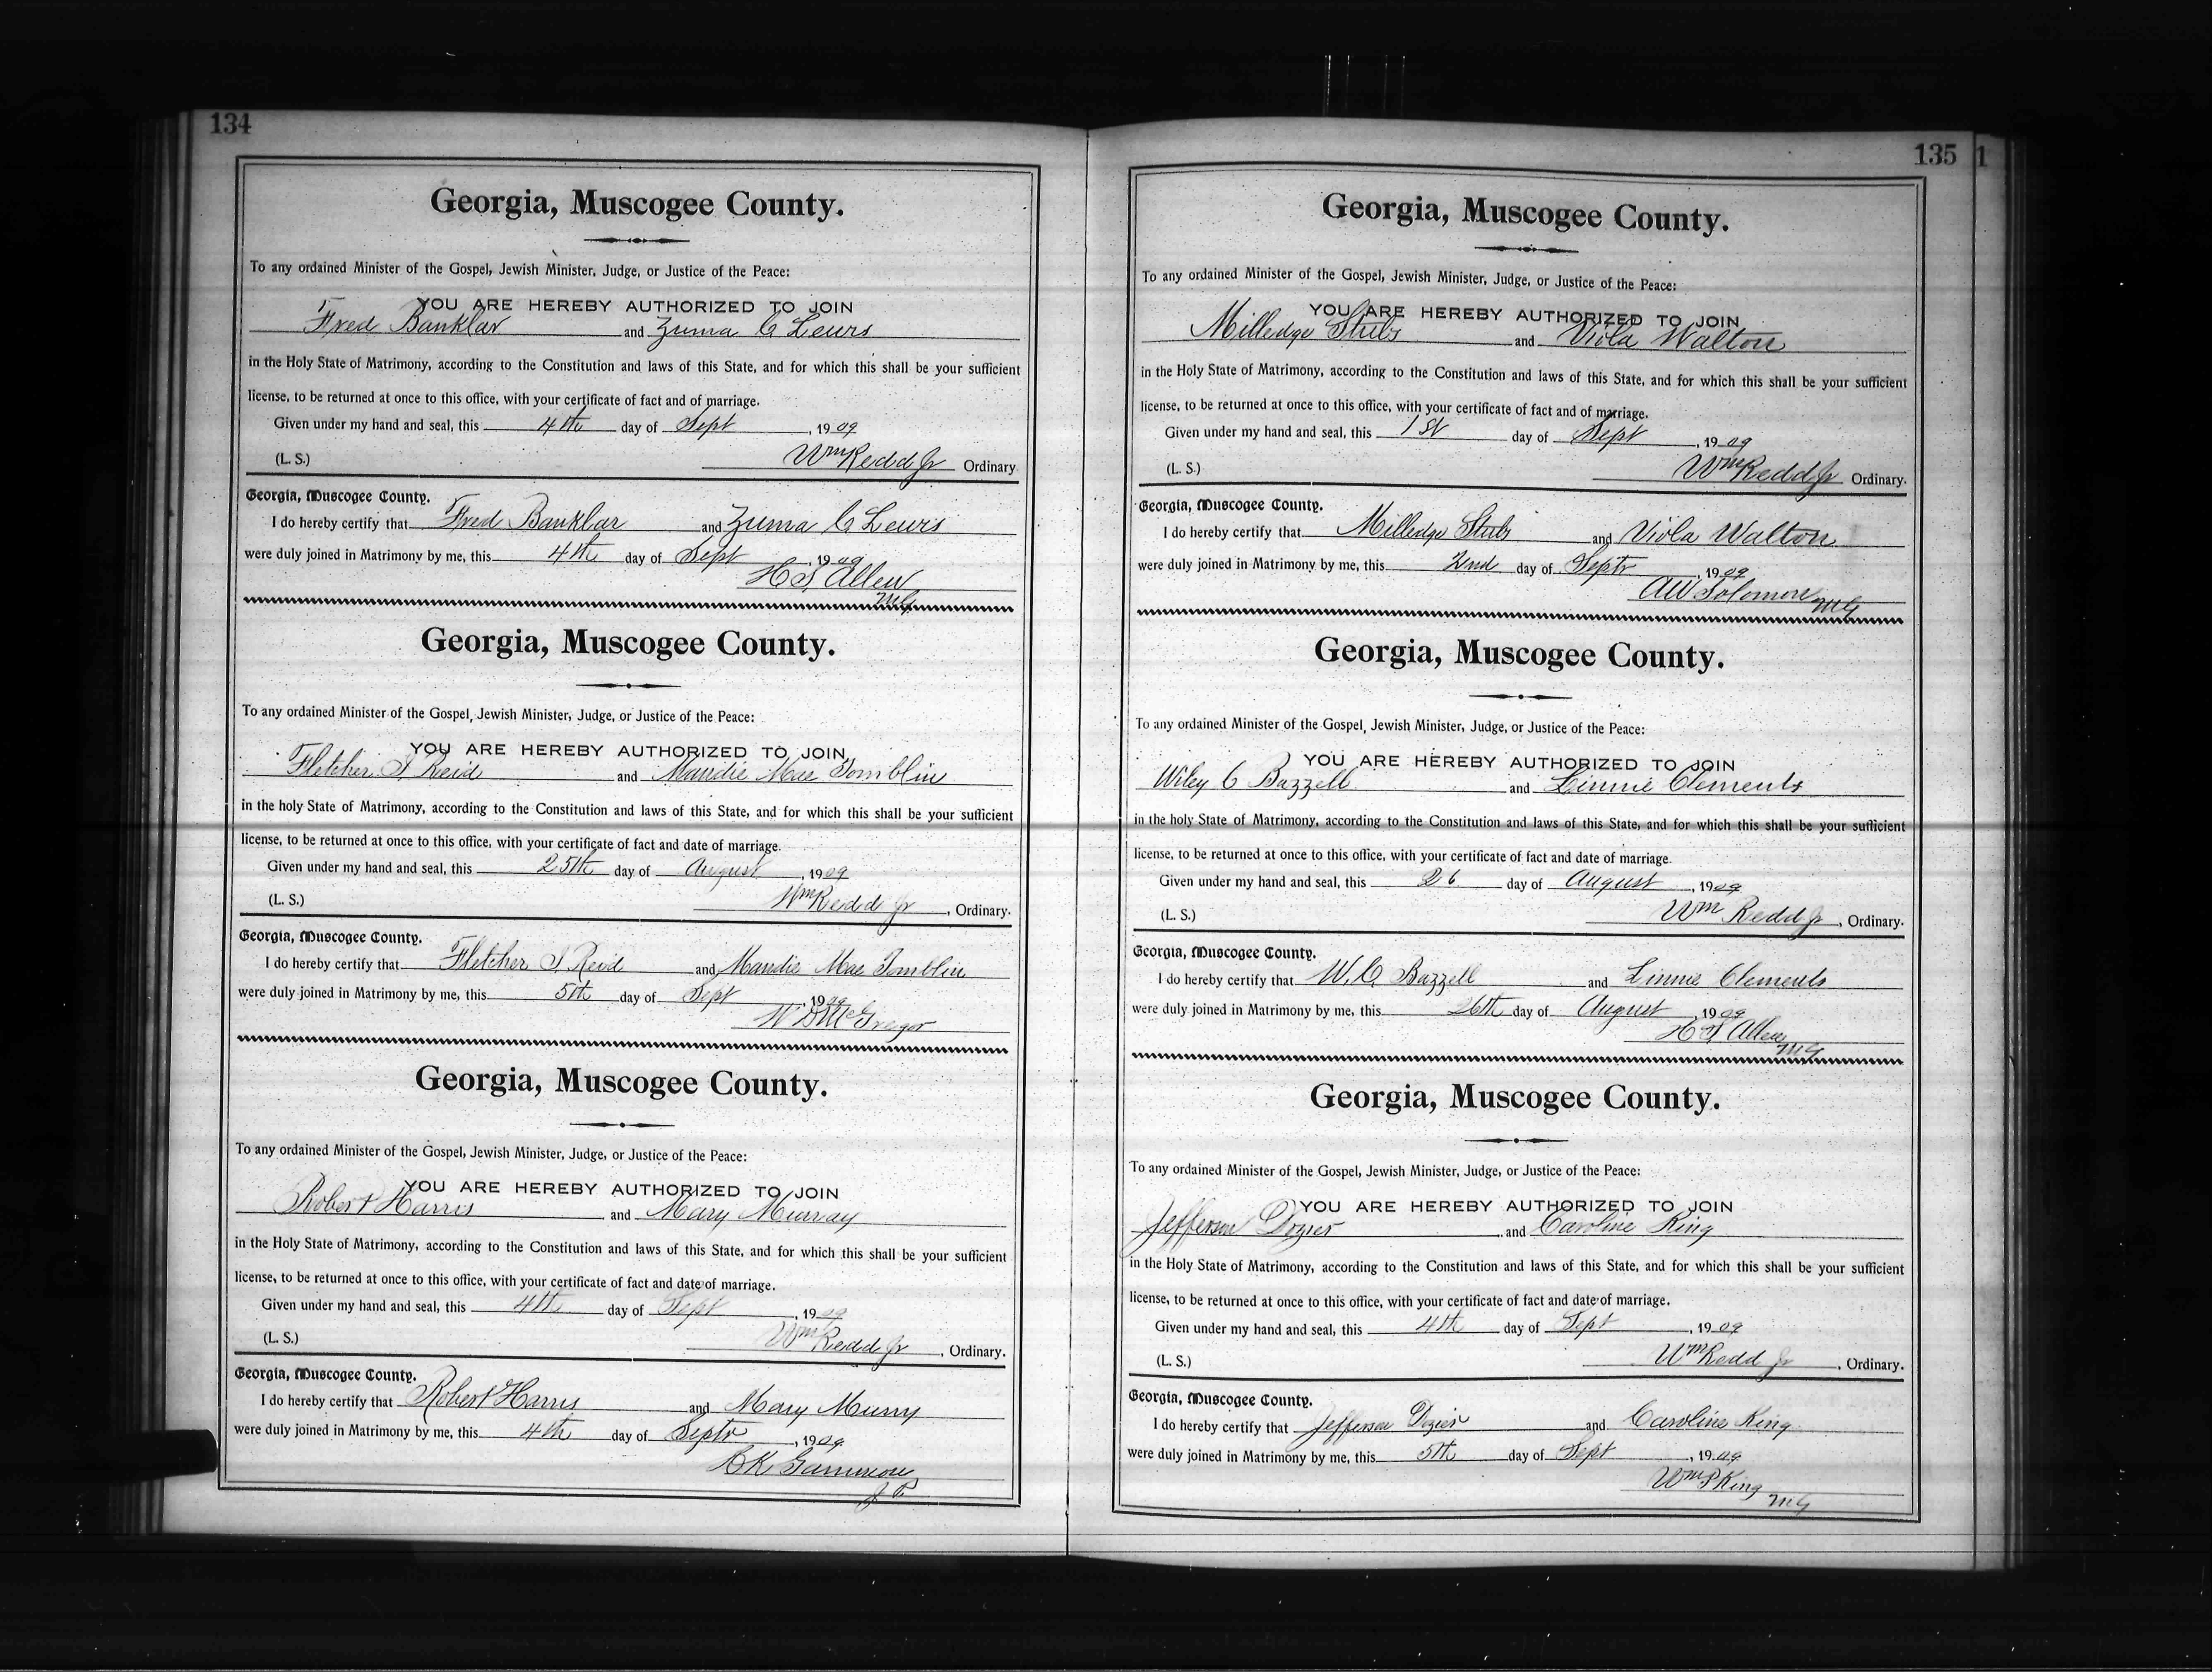 134
Georgia, Muscogee County.
To any ordained Minister of the Gospel, Jewish Minister, Judge, or Justice of the Peace:
YOU ARE HEREBY AUTHORIZED TO JOIN
Fred Banklar and Zuma C Lewis
in the Holy State of Matrimony, according to the Constitution and laws of this State, and for which this shall be your sufficient
license, to be returned at once to this office, with your certificate of fact and of marriage.
Given under my hand and seal, this 4th day of Sept, 1909
(L. S.) Wm Redd Jr Ordinary.
Georgia, Muscogee County.
I do hereby certify that Fred Banklar and Zuma C Lewis
were duly joined in Matrimony by me, this 4th day of Sept, 1909
H S Allen
MG
Georgia, Muscogee County.
To any ordained Minister of the Gospel, Jewish Minister, Judge, or Justice of the Peace:
YOU ARE HEREBY AUTHORIZED TO JOIN
Fletcher S Reid and Maudie Mae Tomblin
in the holy State of Matrimony, according to the Constitution and laws of this State, and for which this shall be your sufficient
license, to be returned at once to this office, with your certificate of fact and date of marriage.
Given under my hand and seal, this 25th day of August, 1909
(L. S.) Wm Redd Jr, Ordinary.
Georgia, Muscogee County.
I do hereby certify that Fletcher S Reid and Maudie Mae Tomblin
were duly joined in Matrimony by me, this 5th day of Sept, 1909
W D McGregor
Georgia, Muscogee County.
To any ordained Minister of the Gospel, Jewish Minister, Judge, or Justice of the Peace:
YOU ARE HEREBY AUTHORIZED TO JOIN
Robert Harris and Mary Murray
in the Holy State of Matrimony, according to the Constitution and laws of this State, and for which this shall be your sufficient
license, to be returned at once to this office, with your certificate of fact and date of marriage.
Given under my hand and seal, this 4th day of Sept, 1909
(L. S.) Wm Redd Jr, Ordinary.
Georgia, Muscogee County.
I do hereby certify that Robert Harris and Mary Murry
were duly joined in Matrimony by me, this 4th day of Septr, 1909
J P
135
Georgia, Muscogee County.
To any ordained Minister of the Gospel, Jewish Minister, Judge, or Justice of the Peace:
YOU ARE HEREBY AUTHORIZED TO JOIN
Milledge Stubs and Viola Walton
in the Holy State of Matrimony, according to the Constitution and laws of this State, and for which this shall be your sufficient
license, to be returned at once to this office, with your certificate of fact and of marriage.
Given under my hand and seal, this 1st day of Sept, 1909
(L. S.) Wm Redd Jr Ordinary.
Georgia, Muscogee County.
I do hereby certify that Milledge Stubs and Viola Walton
were duly joined in Matrimony by me, this 2nd day of Septr, 1909
AW Solomon MG
Georgia, Muscogee County.
To any ordained Minister of the Gospel, Jewish Minister, Judge, or Justice of the Peace:
YOU ARE HEREBY AUTHORIZED TO JOIN
Wiley C Bazzell and Linnie Clements
in the holy State of Matrimony, according to the Constitution and laws of this State, and for which this shall be your sufficient
license, to be returned at once to this office, with your certificate of fact and date of marriage.
Given under my hand and seal, this 26 day of August, 1909
(L. S.) Wm Redd Jr, Ordinary.
Georgia, Muscogee County.
I do hereby certify that W. C. Bazzell and Linnie Clements
were duly joined in Matrimony by me, this 26th day of August, 1909
H S Allen
MG
Georgia, Muscogee County.
To any ordained Minister of the Gospel, Jewish Minister, Judge, or Justice of the Peace:
YOU ARE HEREBY AUTHORIZED TO JOIN
Jefferson Dozier and Caroline King
in the Holy State of Matrimony, according to the Constitution and laws of this State, and for which this shall be your sufficient
license, to be returned at once to this office, with your certificate of fact and date of marriage.
Given under my hand and seal, this 4th day of Sept, 1909
(L. S.) Wm Redd Jr, Ordinary.
Georgia, Muscogee County.
I do hereby certify that Jefferson Dozier and Caroline King
were duly joined in Matrimony by me, this 5th day of Sept, 1909
Wm P King
MG